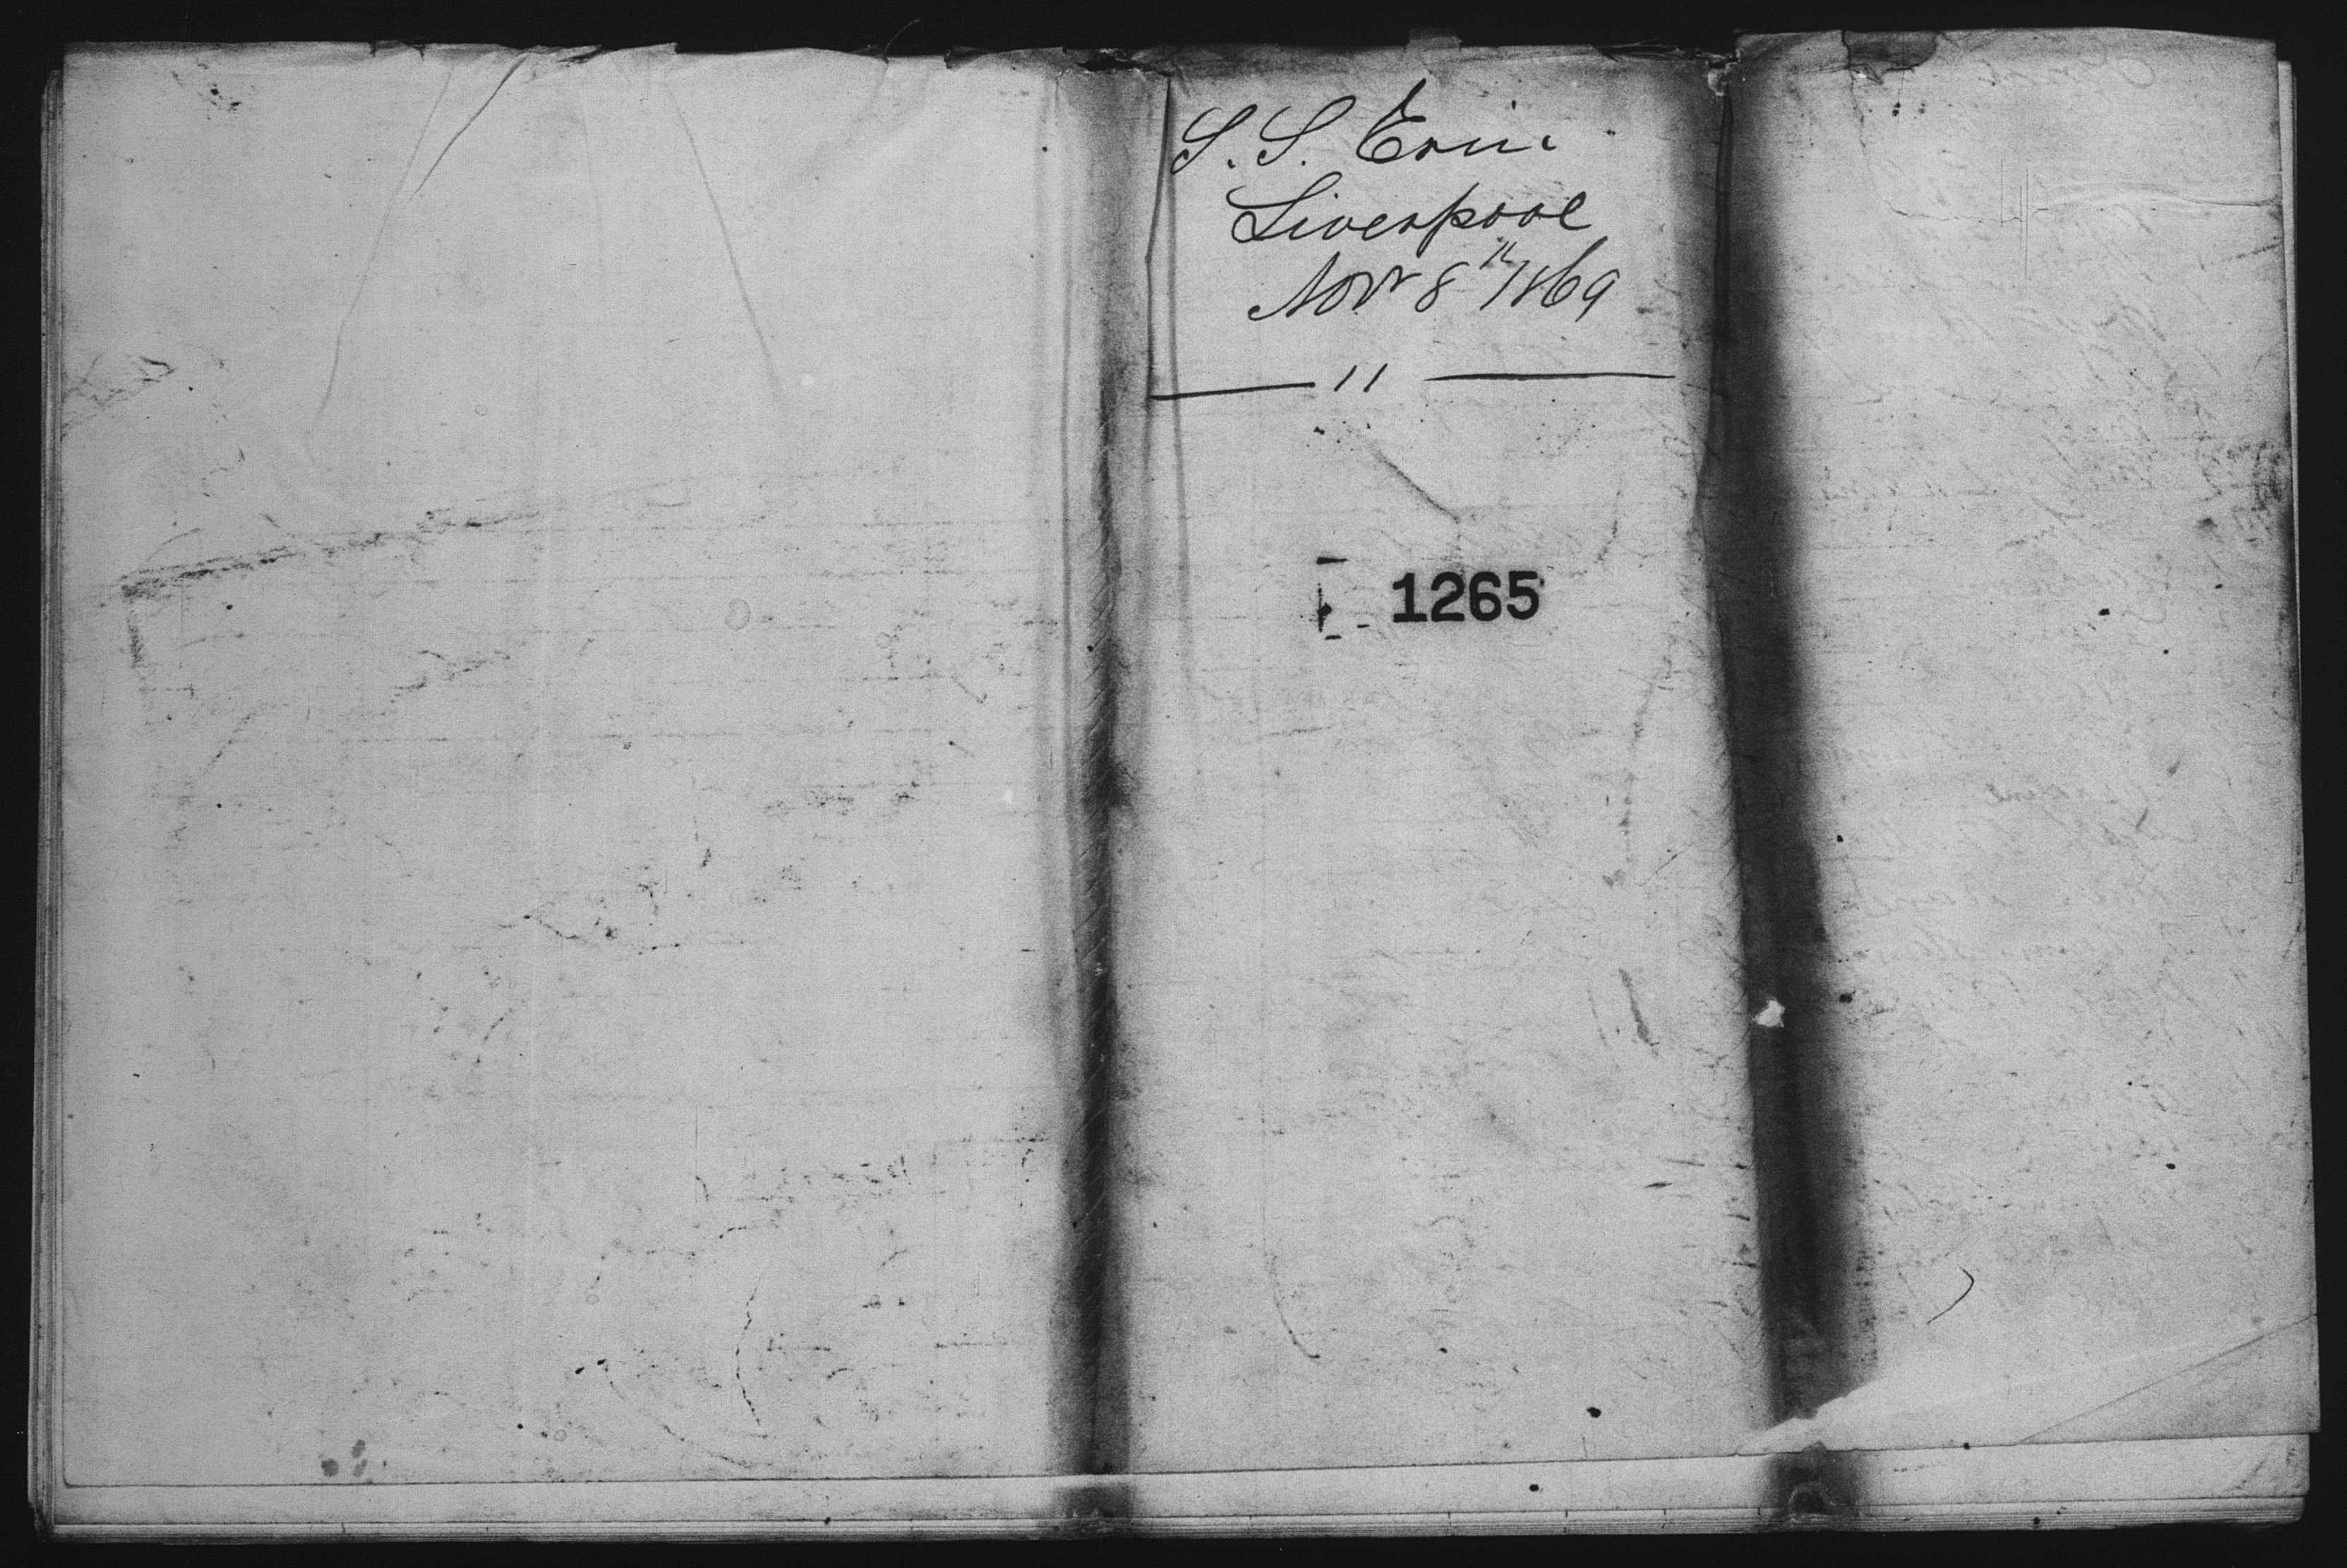 S.S. Erin
Liverpool
Novr 8th 1869
— 11 —
1265